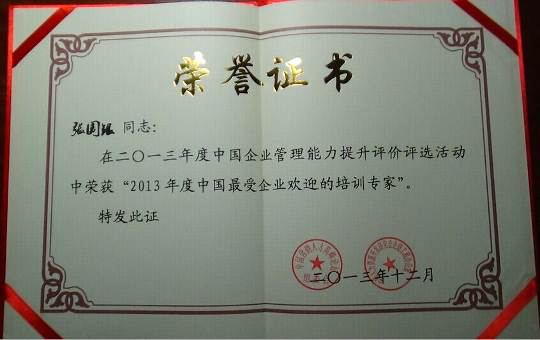 荣誉证书
张国银 同志：
在二〇一三年度中国企业管理能力提升评价评选活动
中荣获“2013年度中国最受企业欢迎的培训专家”。
特发此证
二〇一三年十二月